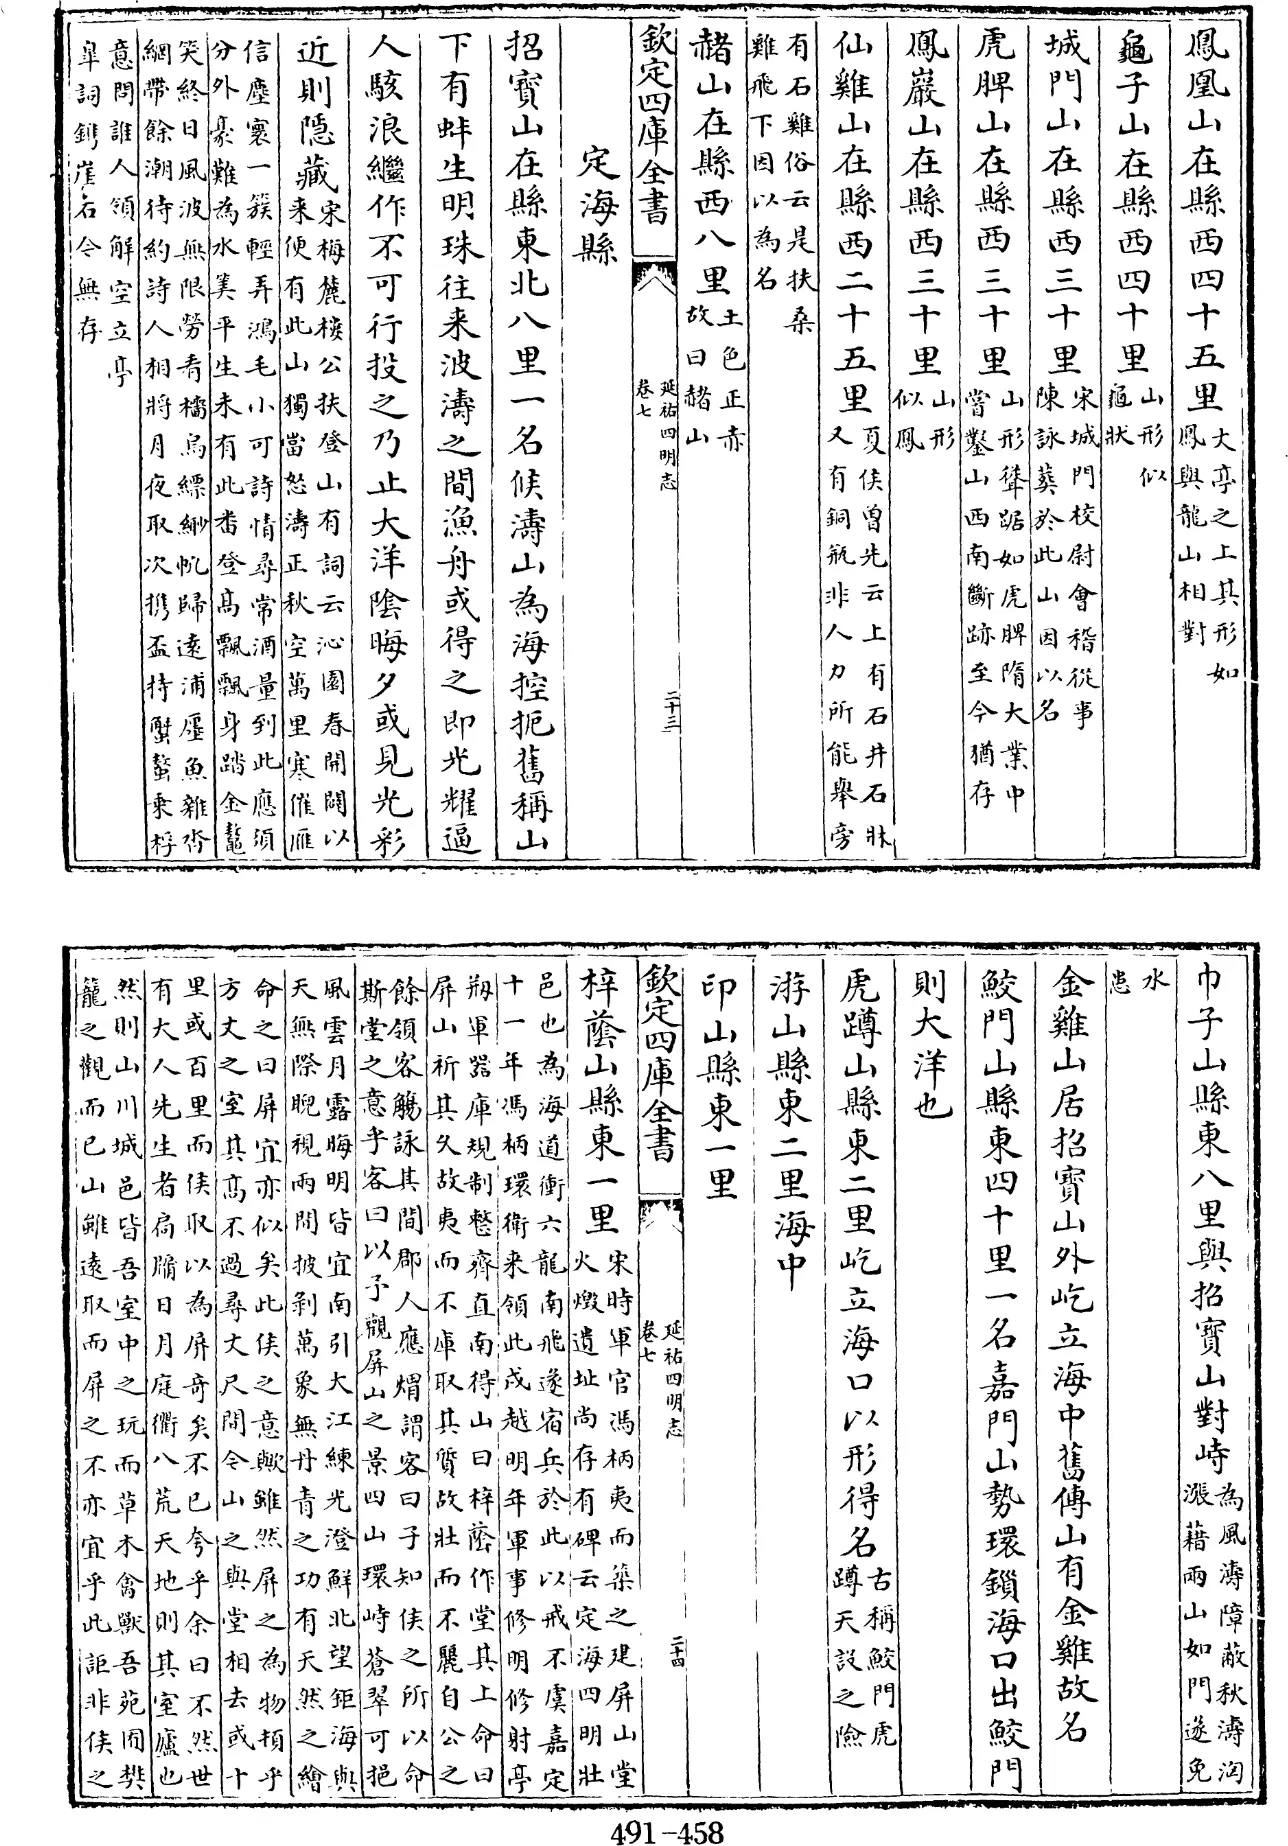 鳳凰山在縣西四十五里大亭之上其形如
鳳與龍山相對
龜子山在縣西四十里山形似
龜狀
城門山在縣西三十里宋城門校尉會稽從事
陳詠葬於此山因以名
虎脾山在縣西三十里山形聳踞如虎脾隋大業中
嘗鑿山西南斷跡至今猶存
鳳巖山在縣西三十里山形
似鳳
仙雞山在縣西二十五里夏侯曾先云上有石井石牀
又有銅瓶非人力所能舉旁
有石雞俗云是扶桑
雞飛下因以為名
赭山在縣西八里土色正赤
故曰赭山
欽定四庫全書
延祐四明志
卷七
二十三
定海縣
招寳山在縣東北八里一名候濤山為海控扼舊稱山
下有蚌生明珠往来波濤之間漁舟或得之即光耀逼
人駭浪繼作不可行投之乃止大洋陰晦夕或見光彩
近則隱藏宋梅麓樓公扶登山有詞云沁園春開闢以
来便有此山獨當怒濤正秋空萬里寒催雁
信塵寰一簇輕弄鴻毛小可詩情尋常酒量到此應須
分外豪難為水筭平生未有此番登髙飄飄身踏金鼇
笑終日風波無限勞看檣烏縹緲帆歸逺浦魚雜沓
網帶餘潮待約詩人相將月夜取次携盃持蟹螯乘桴
意問誰人領解空立亭
皐詞鐫崖石今無存
巾子山縣東八里與招寳山對峙為風濤障蔽秋濤洶
漲藉兩山如門遂免
水
患
金雞山居招寳山外屹立海中舊傳山有金雞故名
鮫門山縣東四十里一名嘉門山勢環鎖海口出鮫門
則大洋也
虎蹲山縣東二里屹立海口以形得名古稱鮫門虎
蹲天設之險
游山縣東二里海中
印山縣東一里
欽定四庫全書
延祐四明志
卷七
二十四
梓蔭山縣東一里宋時軍官馮柄夷而築之建屏山堂
火燬遺址尚存有碑云定海四明壯
邑也為海道衝六龍南飛遂宿兵於此以戒不虞嘉定
十一年馮柄環衛来領此戍越明年軍事修明修射亭
剏軍器庫規制整齊直南得山曰梓蔭作堂其上命曰
屏山祈其久故夷而不庳取其質故壯而不麗自公之
餘領客觴詠其間郡人應㷡謂客曰子知侯之所以命
斯堂之意乎客曰以予觀屏山之景四山環峙蒼翠可挹
風雲月露晦明皆宜南引大江練光澄鮮北望鉅海與
天無際睨視兩間披剥萬象無丹青之功有天然之繪
命之曰屏宜亦似矣此侯之意歟雖然屏之為物頓乎
方丈之室其髙不過尋丈尺間今山之與堂相去或十
里或百里而侯取以為屏奇矣不已夸乎余曰不然世
有大人先生者扄牖日月庭衢八荒天地則其室廬也
然則山川城邑皆吾室中之玩而草木禽獸吾苑囿樊
籠之觀而已山雖逺取而屏之不亦宜乎此詎非侯之
491-458